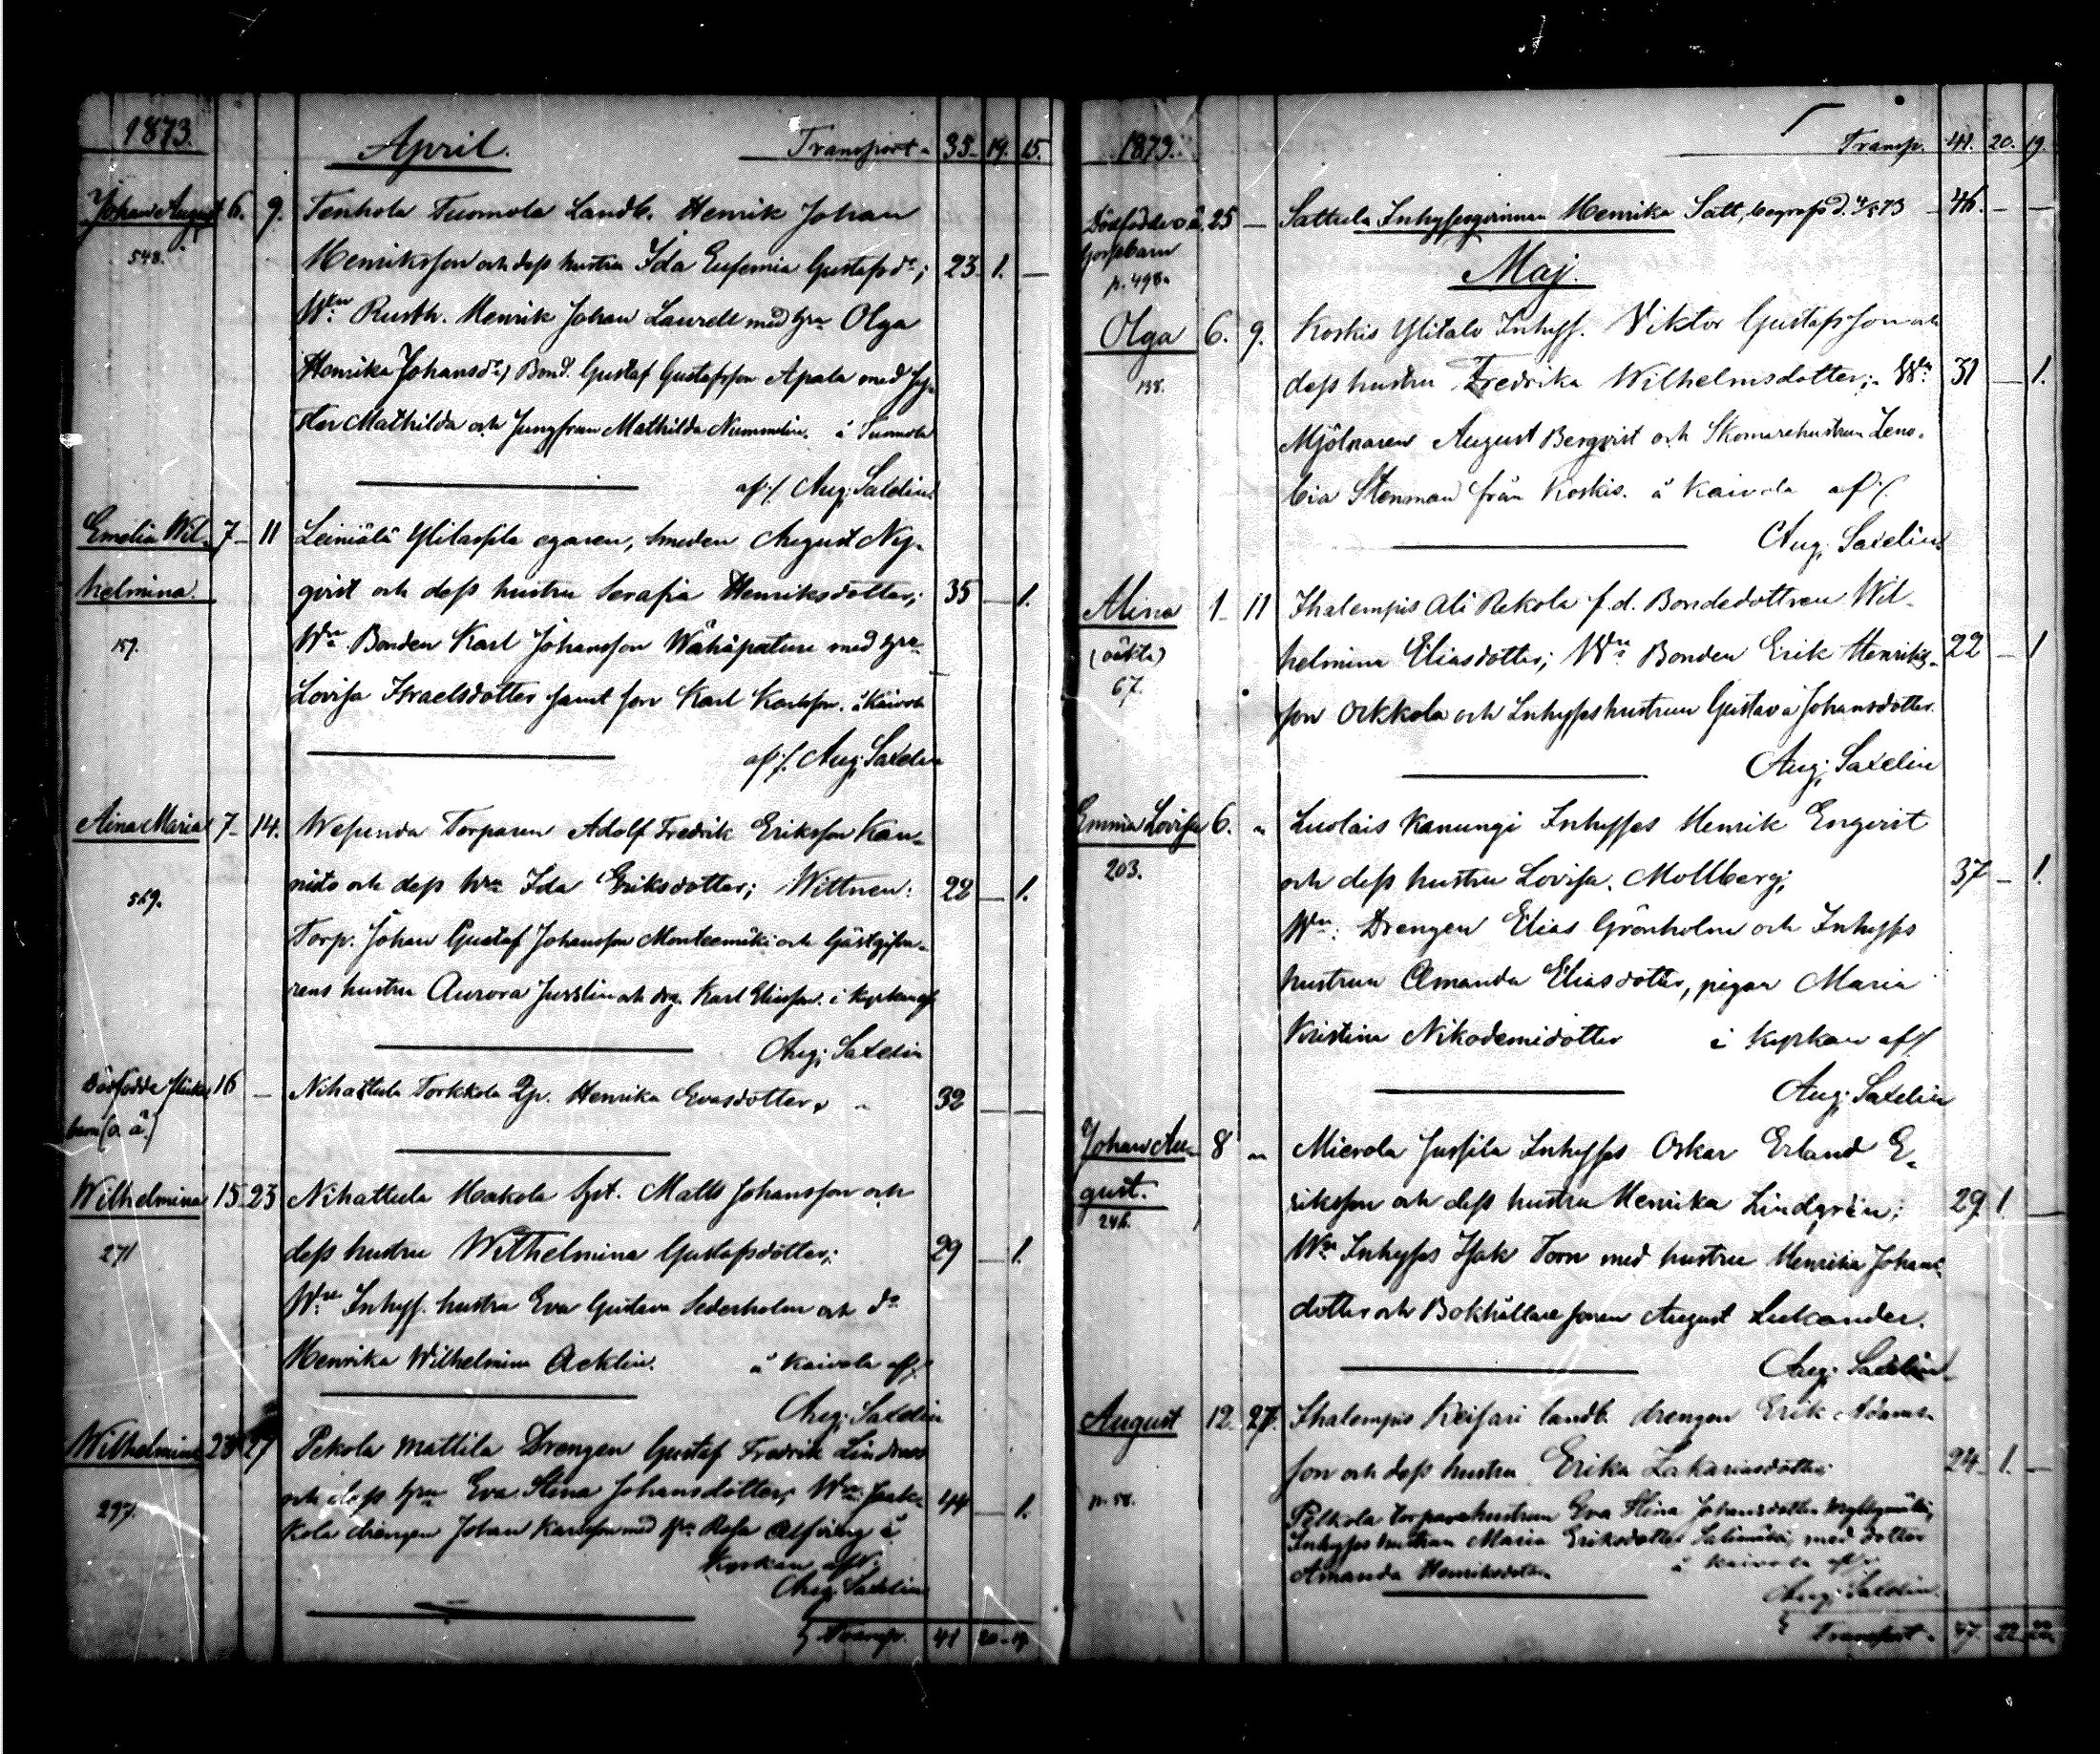 1873.
April. Transport. 35. 19. 15.
Johan August 6. 9. Tenhola Tuomola Landb. Henrik Johan
548. Henriksson och dess hustru Ida Eufemia Gustafsdr; 23. 1. —
Wn: Rusth. Henrik Johan Laurell med hu Olga
Henrika Johansdr, Bond. Gustaf Gustafsson Apala med Sys
ter Mathilda och Jungfrun Mathilda Nummelin. å Tuomola
af Aug: Saxelin
Emelia Wil- 7 11 Leiniälä Ylilassila egaren, Smeden August Ny-
helmina. qvist och dess hustru Serafia Henriksdotter; 35 — 1.
157. Wn Bonden Karl Johansson Wähäpeture med hu
Lovisa Israelsdotter samt son Karl Karlsson. å Kaivola
af Aug: Saxelin
Aina Maria 7 14. Wesunda Torparen Adolf Fredrik Eriksson Kan-
nisto och dess hu Ida Eriksdotter; Wittnen: 22 — 1.
569. Torp. Johan Gustaf Johansson Monteenmäki och Gästgifva-
rens hustru Aurora Jusslin och drg. Karl Eliasson. i Kyrkan af
Aug: Saxelin
Dödfödde flicke 16 — Nihattula Torkkola Qp. Henrika Evasdotter. 32 — —
barn (o ä.)
Wilhelmina 15 23 Nihattula Hakola Syt. Matts Johansson och
271 dess hustru Wilhelmina Gustafsdotter; 29 — 1.
Wn Inhyss. hustru Eva Gustava Sederholm och do
Henrika Wilhelmina Acklin. å Kaivola af
Aug: Saxelin
Wilhelmina 23 27 Pekola Mattila Drengen Gustaf Fredrik Lindroos
297. och dess hu Eva Stina Johansdotter; Wn. Jaak- 44 — 1.
kola drengen Johan Karlsson med hu Rosa Alfving å
Kyrkan af
Aug: Saxelin
Transp. 41 20 19
1873. Transp. 41. 20. 19.
Dödfödder o ä. 25 — Sattula Inhysesqvinnan Henrika Sätt, begrafs d. 4/5 73 46. — —
Gossebarn
p. 498.
Maj.
Olga 6. 9. Koskis Ylitalo Inhyss. Viktor Gustafsson och
138. dess hustru Fredrika Wilhelmsdotter; Wn: 31 — 1.
Mjölnaren August Bergqvist och Skomarehustrun Zeno-
bia Stenman från Koskis. å Kaivola af
Aug: Saxelin
Alina 1 11 Ihalempis Ali Rekola f.d. Bondedottren Wil-
(oäkta) helmina Eliasdotter; Wn: Bonden Erik Henriks- 22 — 1
67. son Orkkola och Inhysshustrun Gustava Johansdotter.
Aug: Saxelin
Emmia Lovisa 6. " Luolais Kanungi Inhysses Henrik Engvist
203. och dess hustru Lovisa Mollberg; 37 — 1.
Wn: Drengen Elias Grönholm och Inhysses
hustrun Amanda Eliasdotter, pigan Maria
Kristina Nikodemidotter i Kyrkan af
Aug: Saxelin
Johan Au- 8 " Mierola Jussila Inhysses Oskar Erland E-
gust. riksson och dess hustru Henrika Lindgrén; 29 1. —
246. Wn Inhysses Isak Torn med hustru Henrika Johans
dotter och Bokhållare sonen August Lukander.
Aug: Saxelin
August 12. 27. Ihalempis Keisari landb. drengen Erik Adams-
son och dess hustru Erika Zakariasdotter 24 1. —
p. 58. Pelkola torparehustrun Eva Stina Johansdotter Myllymäki,
Inhysses hustrun Maria Eriksdotter Salimäki, med dotter
Amanda Henriksdotter å Kaivola af
Aug: Saxelin.
Transport. 47. 22. 22.